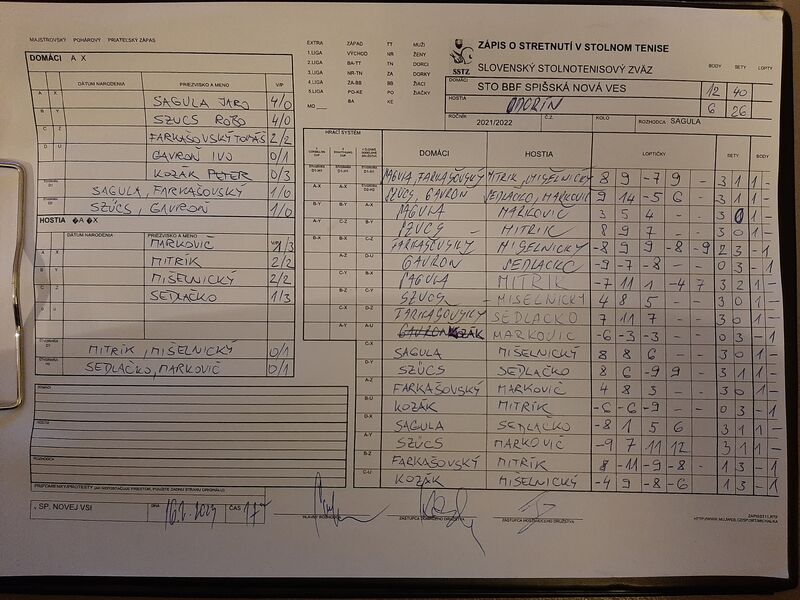 MAJSTROVSKÝ POHÁROVÝ PRIATEĽSKÝ ZÁPAS
DOMÁCI A X
DÁTUM NARODENIA PRIEZVISKO A MENO V/P
A X SAGULA JARO 4/0
B Y SZÚCS ROBO 4/0
C Z FARKAŠOVSKÝ TOMÁŠ 2/2
D U GAVROŇ IVO 0/1
KOZÁK PETER 0/3
SAGULA, FARKAŠOVSKÝ 1/0
SZÚCS, GAVROŇ 1/0
HOSTIA �A �X
DÁTUM NARODENIA PRIEZVISKO A MENO V/P
A X MARKOVIČ 1/3
B Y MITRÍK 2/2
C Z MIŠELNICKÝ 2/2
D U SEDLAČKO 1/3
MITRÍK, MIŠELNICKÝ 0/1
SEDLAČKO, MARKOVIČ 0/1
DOMÁCI
HOSTIA
ROZHODCA
PRIPOMIENKY/PROTESTY
. SP. NOVEJ VSI DŇA ČAS
EXTRA ZÁPAD TT MUŽI
1.LIGA VÝCHOD NR ŽENY
2.LIGA BA-TT TN DORCI
3.LIGA NR-TN ZA DORKY
4.LIGA ZA-BB BB ŽIACI
5.LIGA PO-KE PO ŽIAČKY
MO BA KE
SSTZ
ZÁPIS O STRETNUTÍ V STOLNOM TENISE
SLOVENSKÝ STOLNOTENISOVÝ ZVÄZ
BODY SETY LOPTY
DOMÁCI STO BBF SPIŠSKÁ NOVÁ VES 12 40
HOSTIA ODORÍN 6 26
ROČNÍK 2021/2022 Č.Z. KOLO ROZHODCA SAGULA
HRACÍ SYSTÉM DOMÁCI HOSTIA LOPTIČKY SETY BODY
SAGULA, FARKAŠOVSKÝ MITRIK, MIŠELNICKÝ 8 9 -7 9 - 3 1 1 -
A-X SZÚCS, GAVRON SEDLAČKO, MARKOVIČ 9 14 -5 6 - 3 1 1 -
B-Y A-X SAGULA MARKOVIČ 3 5 4 - - 3 0 1 -
A-Y C-Z B-Y SZUCS MITRIK 8 9 7 - - 3 0 1 -
B-X B-X C-Z FARKAŠOVSKY MIŠELNICKY -8 9 9 -8 -9 2 3 - 1
A-Z D-U GAVRON SEDLACKO -9 -7 -8 - - 0 3 - 1
C-Y B-X SAGULA MITRIK -7 11 1 -4 7 3 2 1 -
B-Z C-Y SZUCS - MISELNICKY 4 8 5 - - 3 0 1 -
C-X D-Z FARKAŠOVSKY SEDLACKO 7 11 7 - - 3 0 1 -
A-Y A-U KOZÁK MARKOVIC -6 -3 -3 - - 0 3 - 1
C-X SAGULA MIŠELNICKÝ 8 8 6 - - 3 0 1 -
D-Y SZÚCS SEDLAČKO 8 6 -9 9 - 3 1 1 -
A-Z FARKAŠOVSKÝ MARKOVIČ 4 8 3 - - 3 0 1 -
B-U KOZÁK MITRÍK -6 -6 -9 - - 0 3 - 1
D-X SAGULA SEDLAČKO -8 1 5 6 - 3 1 1 -
A-Y SZÚCS MARKOVIČ -9 7 11 12 - 3 1 1 -
B-Z FARKAŠOVSKÝ MITRÍK 8 -11 -9 -8 - 1 3 - 1
C-U KOZÁK MIŠELNICKÝ -4 9 -8 -6 - 1 3 - 1
HLAVNÝ ROZHODCA ZÁSTUPCA DOMÁCEHO DRUŽSTVA ZÁSTUPCA HOSŤUJÚCEHO DRUŽSTVA